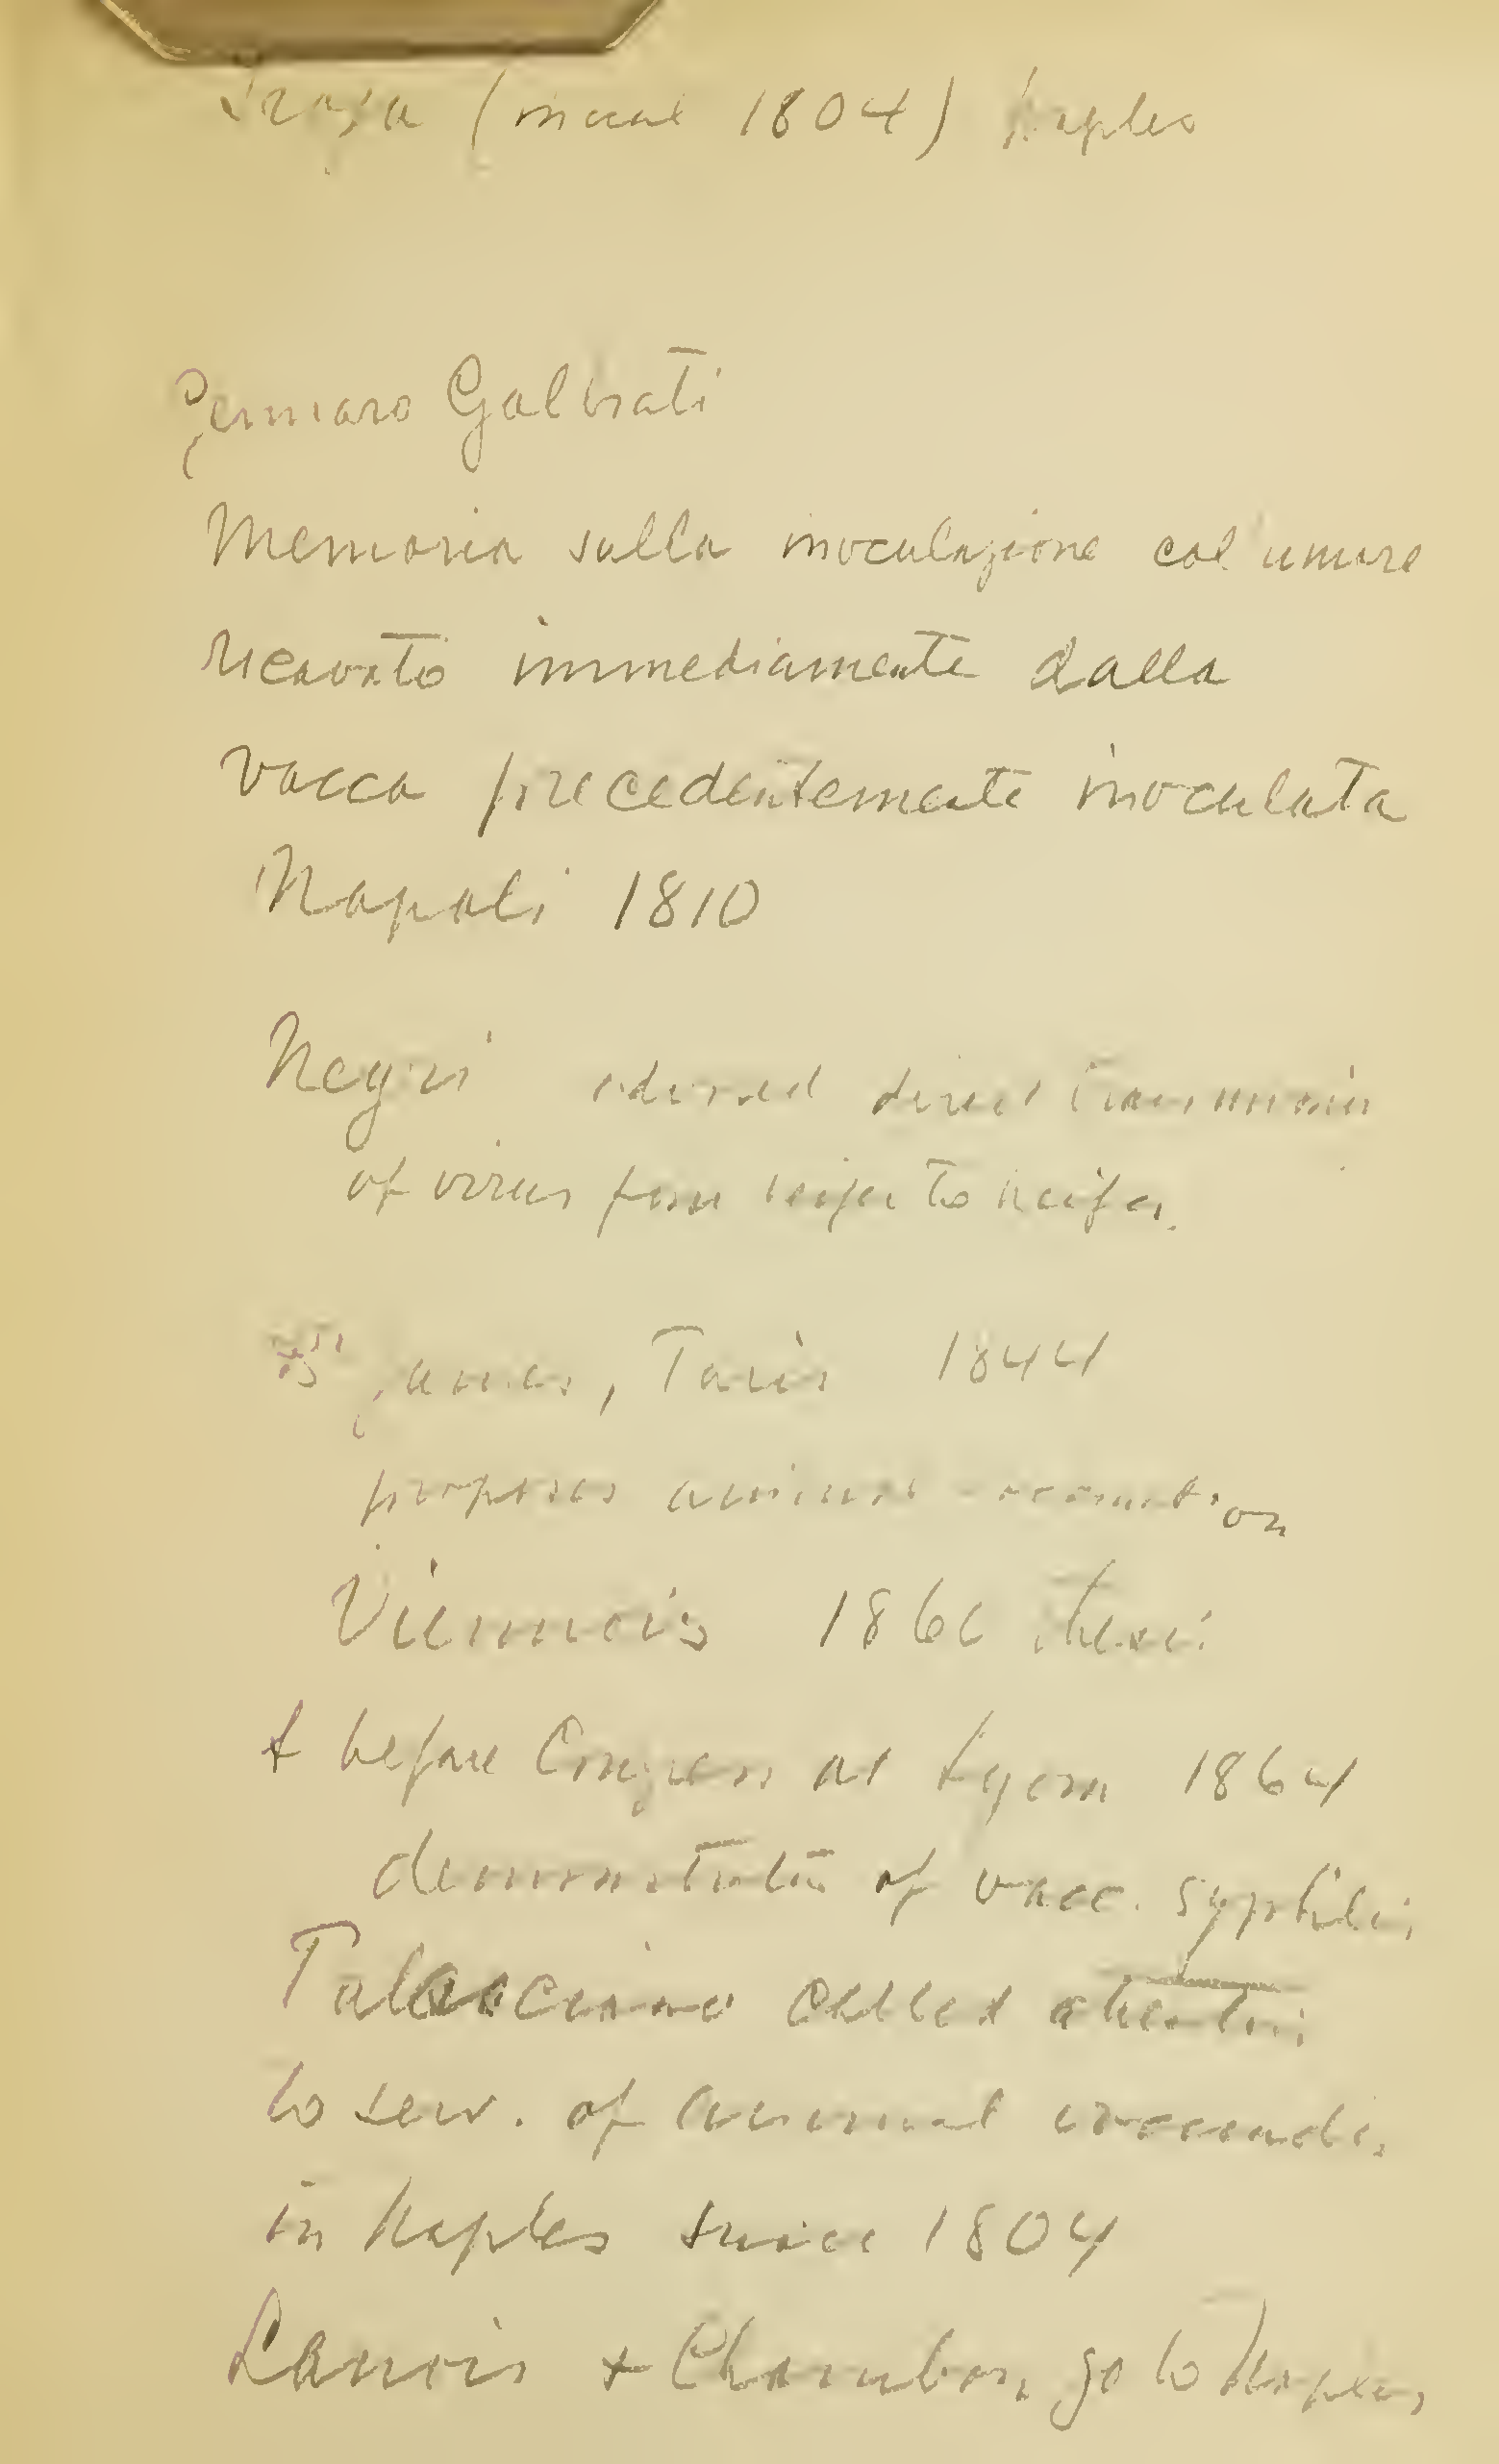 Troja (meeal 1804) Naples
Gennaro Galbiati
Memoria sulla inoculazione col umore
ricavato immediamente dalla
vacca precedentemente inoculata
Napoli 1810
Negri direct transmission
of virus from heifer to heifer.
James, Paris 1844
proposes animal vaccination
Viennois 1860 thesis
& before Congress at Lyon 1864
demonstrates of vacc. syphilis
Palasciano called attention
to serv. of animal vaccinatio
in Naples since 1804
Lanoix & Chambon go to Naples